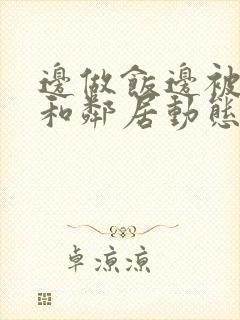 邊做飯邊被
和鄰居動態
卓涼涼